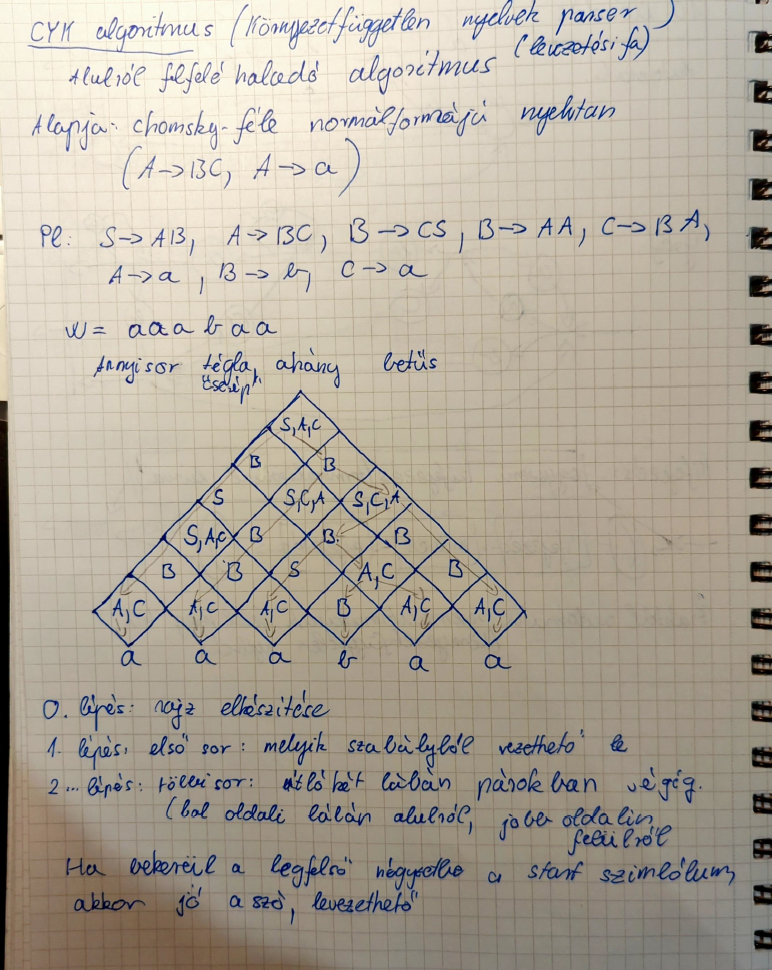 CYK algoritmus (Környezetfüggetlen nyelvek parser)
(levezetési fa)
Alulról felfelé haladó algoritmus
Alapja: chomsky-féle normálformájú nyelvtan
(A->BC, A->a)
Pl: S->AB, A->BC, B->CS, B->AA, C->BA,
A->a, B->b, C->a
w= aaabaa
Annyi sor tégla, ahány betűs
"cserép"
S,A,C
B B
S S,C,A S,C,A
S,A,C B B B
B B S A,C B
A,C A,C A,C B A,C A,C
a a a b a a
0. lépés: rajz elkészítése
1. lépés: első sor: melyik szabályból vezethető le
2... lépés: többi sor: átló két lábán párokban végig.
(bal oldali lábán alulról, jobb oldalin
felülről
Ha bekerül a legfelső négyzetbe a start szimbólum,
akkor jó a szó, levezethető